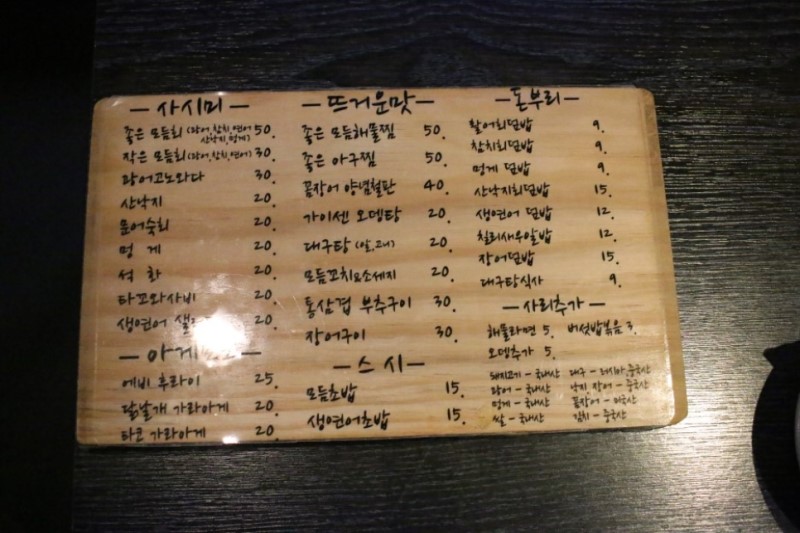 — 사시미 —
좋은 모듬회 (광어,참치,연어 50.
산낙지,멍게)
작은 모듬회 (광어,참치,연어) 30.
광어고노와다 30.
산낙지 20.
문어숙회 20.
멍 게 20.
석 화 20.
타꼬와사비 20.
생연어 샐 20.
— 아게
에비 후라이 25.
닭날개 가라아게 20.
타코 가라아게 20.
— 뜨거운맛 —
좋은 모듬해물찜 50.
좋은 아구찜 50.
꼼장어 양념철판 40.
가이센 오뎅탕 20.
대구탕 (알,고니) 20.
모듬꼬치&소세지 20.
통삼겹 부추구이 30.
장어구이 30.
— 스 시 —
모듬초밥 15.
생연어초밥 15.
— 돈부리 —
활어회덮밥 9.
참치회덮밥 9.
멍게 덮밥 9.
산낙지회덮밥 15.
생연어 덮밥 12.
칠리새우알밥 12.
장어덮밥 15.
대구탕식사 9.
— 사리추가 —
해물라면 5. 버섯밥볶음 3.
오뎅추가 5.
돼지고기 – 국내산 대구 – 러시아,중국산
광어 – 국내산 낙지 장어 – 중국산
멍게 – 국내산 꼼장어 – 미국산
쌀 – 국내산 김치 – 중국산